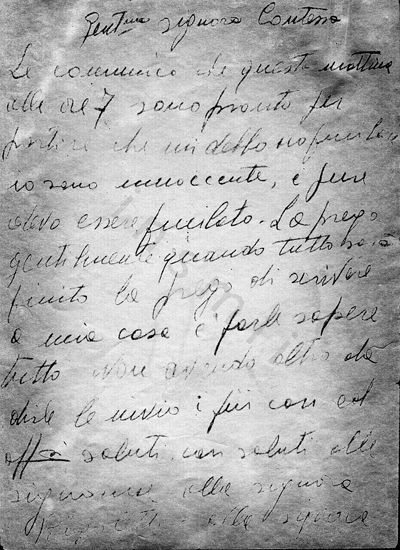 Gent.ma signora Contessa
Le comunico che questa mattina
alle ore 7 sono pronto per
partire che mi debbono fucilare,
io sono innocente, e pure
devo essere fucilato. La prego
gentilmente quando tutto sarà
finito la prego di scrivere
a mia casa e farle sapere
tutto Non avendo altro da
dirle le invio i più cari ed
aff.si saluti, cari saluti alle
signorine alla signora
alla signora